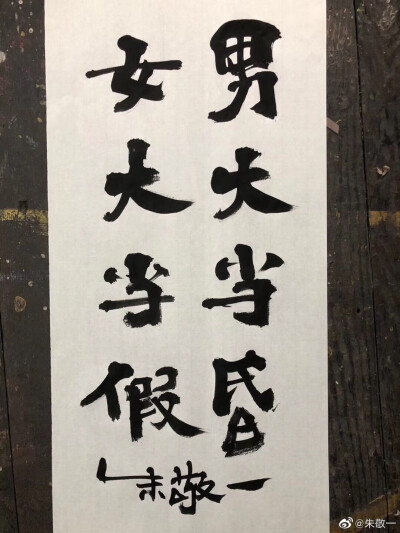 男大当昏
女大当假
朱敬一
@朱敬一